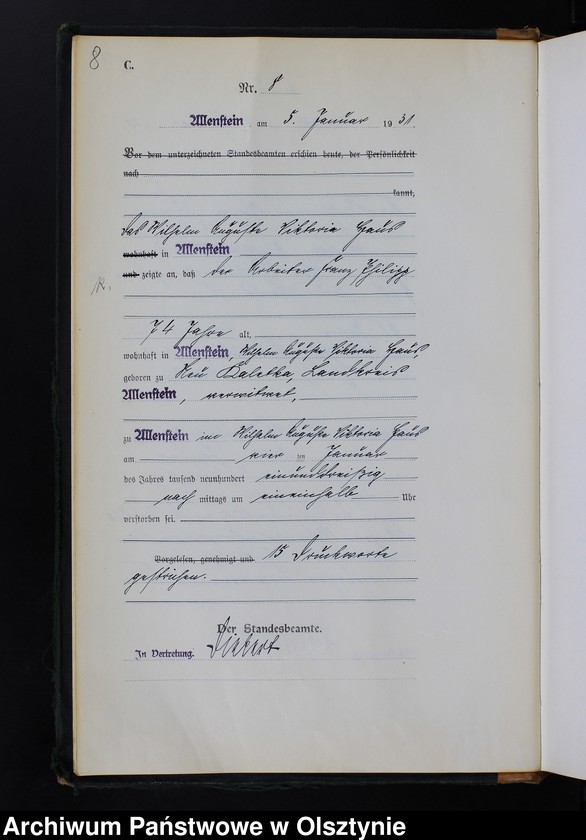 8
C.
Nr. 8
Allenstein am 5. Januar 1931.
Vor dem unterzeichneten Standesbeamten erschien heute, der Persönlichkeit
nach
kannt,
Das Wilhelm Auguste Viktoria Haus
wohnhaft in Allenstein
und zeigte an, daß der Arbeiter Franz Philipp
74 Jahre alt,
wohnhaft in Allenstein, Wilhelm Auguste Viktoria Haus,
geboren zu Neu Kaletka, Landkreis
Allenstein, verwitwet,
zu Allenstein im Wilhelm Auguste Viktoria Haus
am vier ten Januar
des Jahres tausend neunhundert einunddreißig
nach mittags um eineinhalb Uhr
verstorben sei.
Vorgelesen, genehmigt und 15 Druckworte
gestrichen.
Der Standesbeamte.
In Vertretung.
Archiwum Państwowe w Olsztynie